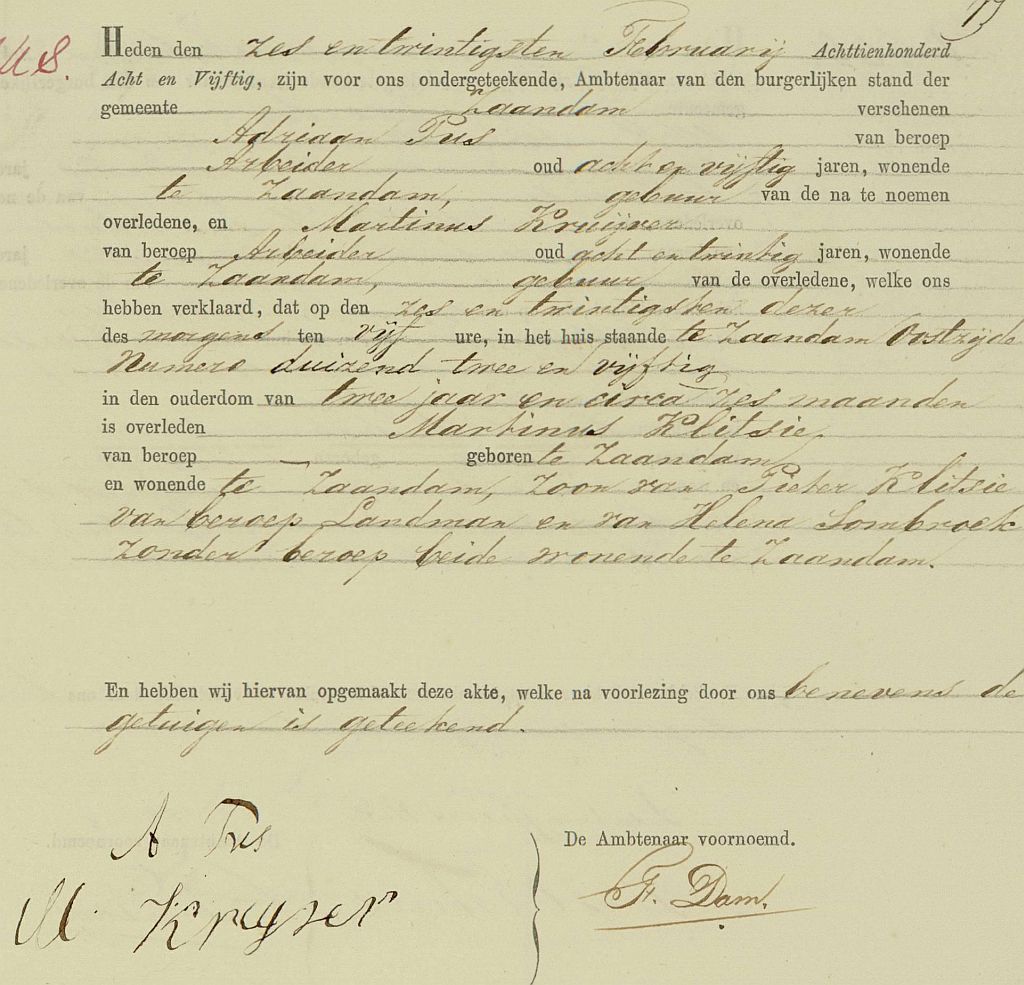 Heden den zes en twintigsten Februarij Achttienhonderd
Acht en Vijftig, zijn voor ons ondergeteekende, Ambtenaar van den burgerlijken stand der
gemeente Zaandam verschenen
Adriaan Pus van beroep
Arbeider oud acht en vijftig jaren, wonende
te Zaandam, gebuur van de na te noemen
overledene, en Martinus Kruijver
van beroep Arbeider oud acht en twintig jaren, wonende
te Zaandam, gebuur van de overledene, welke ons
hebben verklaard, dat op den zes en twintigsten dezer
des morgens ten vijf ure, in het huis staande te Zaandam Oostzijde
Numero duizend twee en vijftig
in den ouderdom van twee jaar en circa zes maanden
is overleden Martinus Klitsie,
van beroep — geboren te Zaandam
en wonende te Zaandam, zoon van Pieter Klitsie
van beroep Landman en van Helena Sombroek
zonder beroep beide wonende te Zaandam.
En hebben wij hiervan opgemaakt deze akte, welke na voorlezing door ons benevens de
getuigen is geteekend.
A Pus
M. Kruyver
De Ambtenaar voornoemd.
F. Dam.